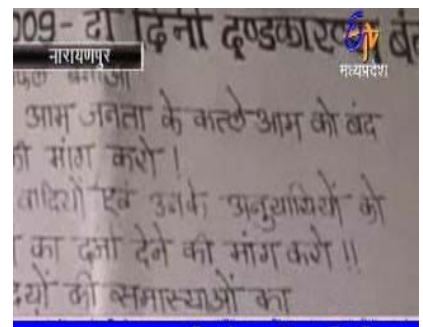 009- दो दिनी दण्डकारण्य बंद
नारायणपुर
मध्यप्रदेश
सफल बनाओ
आम जनता के कत्लेआम को बंद
की मांग करो !
वादियों एवं उनके अनुयायियों को
का दर्जा देने की मांग करो !!
की समास्याओं का